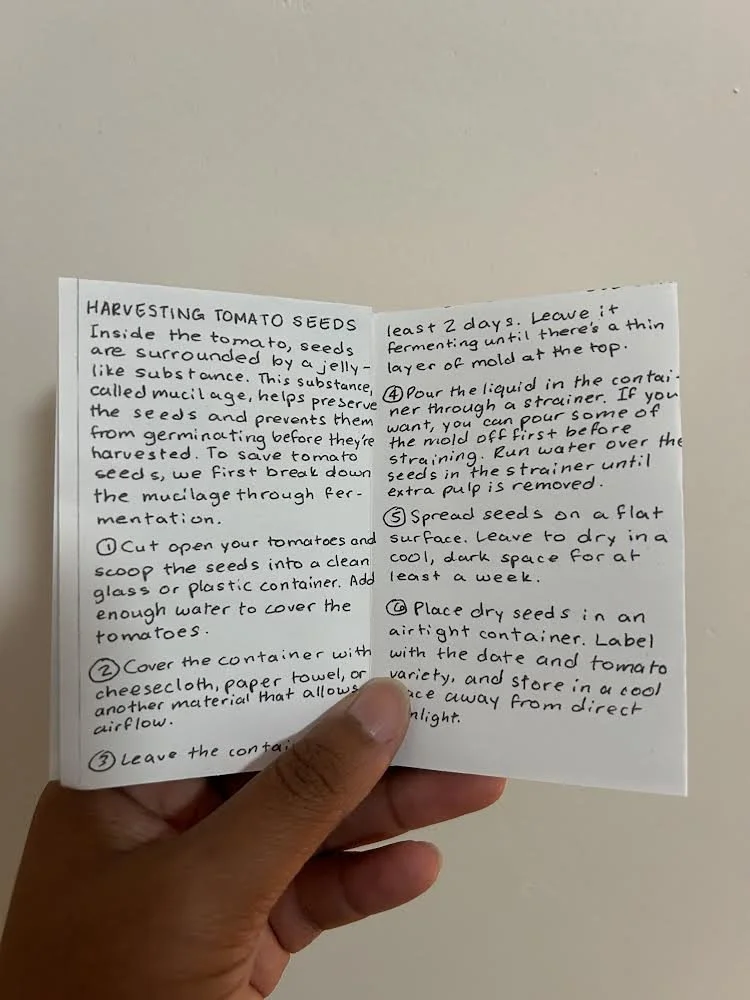 HARVESTING TOMATO SEEDS
Inside the tomato, seeds
are surrounded by a jelly-
like substance. This substance,
called mucilage, helps preserve
the seeds and prevents them
from germinating before they're
harvested. To save tomato
seeds, we first break down
the mucilage through fer-
mentation.
① Cut open your tomatoes and
scoop the seeds into a clean
glass or plastic container. Add
enough water to cover the
tomatoes.
② Cover the container with
cheesecloth, paper towel, or
another material that allows
airflow.
③ Leave the contai
least 2 days. Leave it
fermenting until there's a thin
layer of mold at the top.
④ Pour the liquid in the contai-
ner through a strainer. If you
want, you can pour some of
the mold off first before
straining. Run water over the
seeds in the strainer until
extra pulp is removed.
⑤ Spread seeds on a flat
surface. Leave to dry in a
cool, dark space for at
least a week.
⑥ Place dry seeds in an
airtight container. Label
with the date and tomato
variety, and store in a cool
ace away from direct
nlight.